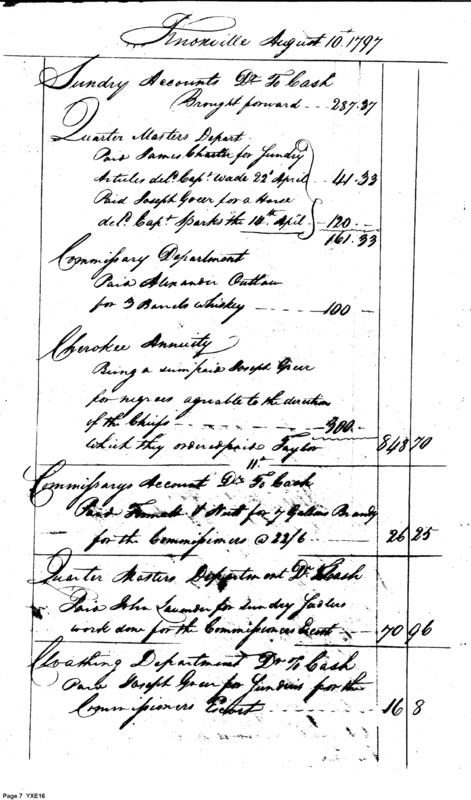 Knoxville August 10th 1797
Sundry Accounts Dr To Cash
Brought forward --- 287.37
Quarter Masters Depart
Paid James Charter for Sundry
Articles deld Capt Wade 22d April -- 41.33
Paid Joseph Greer for a Horse
deld Capt Sparks the 14th April -- 120 --
161.33
Commissary Department
Paid Alexander Outlaw
for 3 Barrels whiskey ---- 100 --
Cherokee Annuity
Being a sum paid Joseph Greer
for negroes agreable to the direction
of the Chiefs ---- 300 --
which they ordered paid Taylor 848 70
11th
Commissarys Account Dr To Cash
Paid & Nutt for 7 Gallons Brandy
for the Commissioners @ 22/6 ---- 26 25
Quarter Masters Department Dr Cash
Paid John Lavender for sundry Sadlers
work done for the Commissioners Escort -- 70 96
Cloathing Department Dr To Cash
Paid Joseph Greer for Sundries for the
Commissioners Escort ---- 16 8
Page 7 YXE16